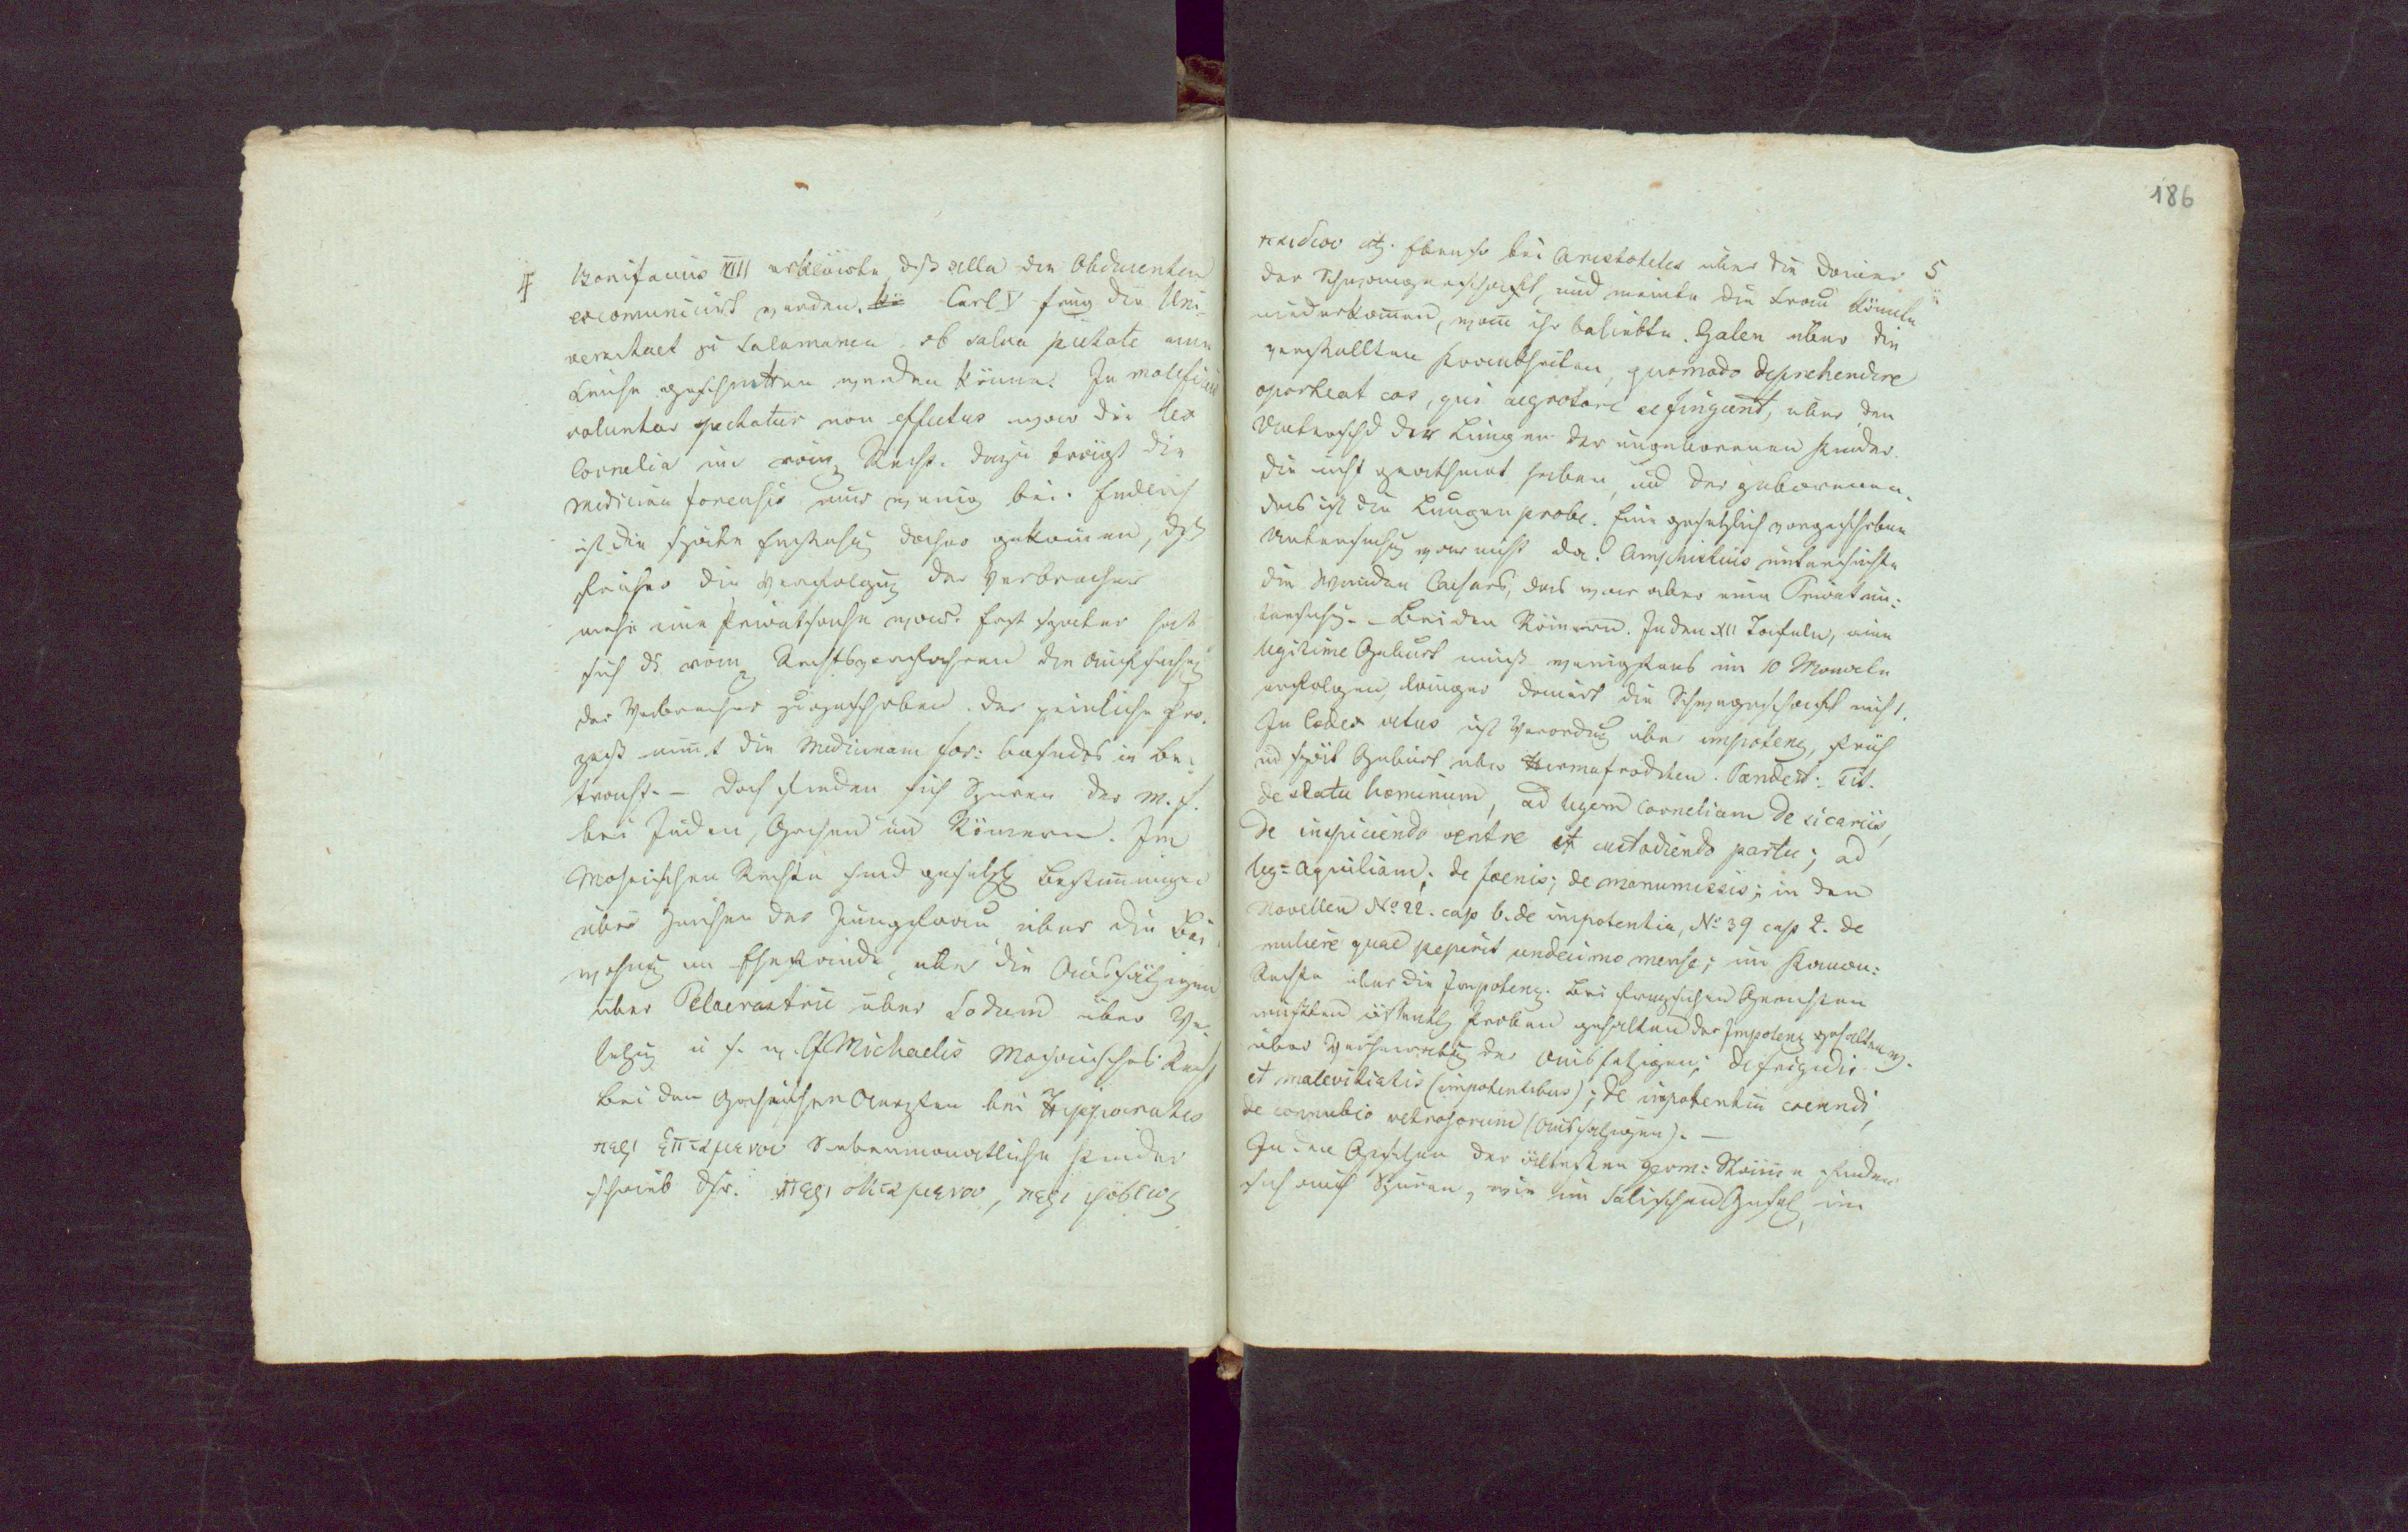 4
Bonifacius XIII erklärte daß alle die Obducenten
excomunicirt werden. Carl V frug die Uni-
versitaet zu Salamanca ob salva pietate eine
Leiche geschnitten werden könne. In maleficiis
voluntas spectatur non effectus war die lex
Cornelia im röm Recht. dazu trägt die
medicina forensis nur wenig bei. Endlich
ist die späte Entstehung daher gekommen, daß
früher die Verfolgung der Verbrecher
mehr eine Privatsache war. Erst später hat
sich ds röm Rechtsverfahren die Aufsuchung
der Verbrecher zugeschoben. der peinliche Pro-
zeß nimmt die Medicinam for: besonders in Be-
tracht. – doch finden sich Spuren der M. f.
bei Juden, Griechen und Römern. Im
Mosaischen Rechte sind gesetzl Bestimmungen
über Zeichen der Jungfrau, über die Bei-
wohnung im Ehestande, über die Aussätzigen
über Paederastrie über Sodom über Ver-
letzung u s. w. cf Michaelis Mosaisches Recht
Bei den Griechischen Aerzten bei Hippocrates
περι επταμενου Siebenmonatliche Kinder
schrieb dsr. περι οκταμενου, περι φύσεως
186
5
παιδιου etz. Ebenso bei Aristoteles über die Dauer
der Schwangerschaft, und meinte die Frau könnte
niederkommen, wann ihr beliebte. Galen über die
verstellten Krankheiten, quomodo deprehendere
oporteat eos, qui aegrotare se fingunt, über den
Unterschd der Lungen der ungeborenen Kinder
die nicht geathmet haben, und der geborenen.
das ist die Lungenprobe. Eine gesetzlich vorgeschriebene
Untersuchung war nicht da. Amphistius untersuchte
die Wunden Caesars, das war aber eine Privatun-
tersuchung. – Bei den Römern. In den XII Tafeln, eine
legitime Geburt muß wenigstens im 10 Monate
erfolgen, länger dauert die Schwangerschaft nicht.
In Codex vetus ist Verordnung über impotenz, früh
und spät Geburt über Hermafroditen. Pandect: Tit.
de statu hominum, ad legem corneliam de sicariis,
de inspiciendo ventre et custodiendo partu; ad
leg= Aquiliam; de poenis; de manumissis; in den
Novellen No: 22. cap 6. de impotentia, No: 39 cap 2. de
muliere quae peperit undecimo mense; im Kanon:
Rechte über die Impotenz. Bei französischen Gerichten
mußten öffentl Proben gehalten der Impotenz gehalten w.
über Verheirathung der Aussätzigen; de frigidis
et maleficiatis (impotentibus); de impotentia coeundi,
de connubio leprosorum (Aussätzigen). –
In den Gesetzen der ältesten germ: Stämme finden
sich auch Spuren, wie im Salischen Gesetz, im